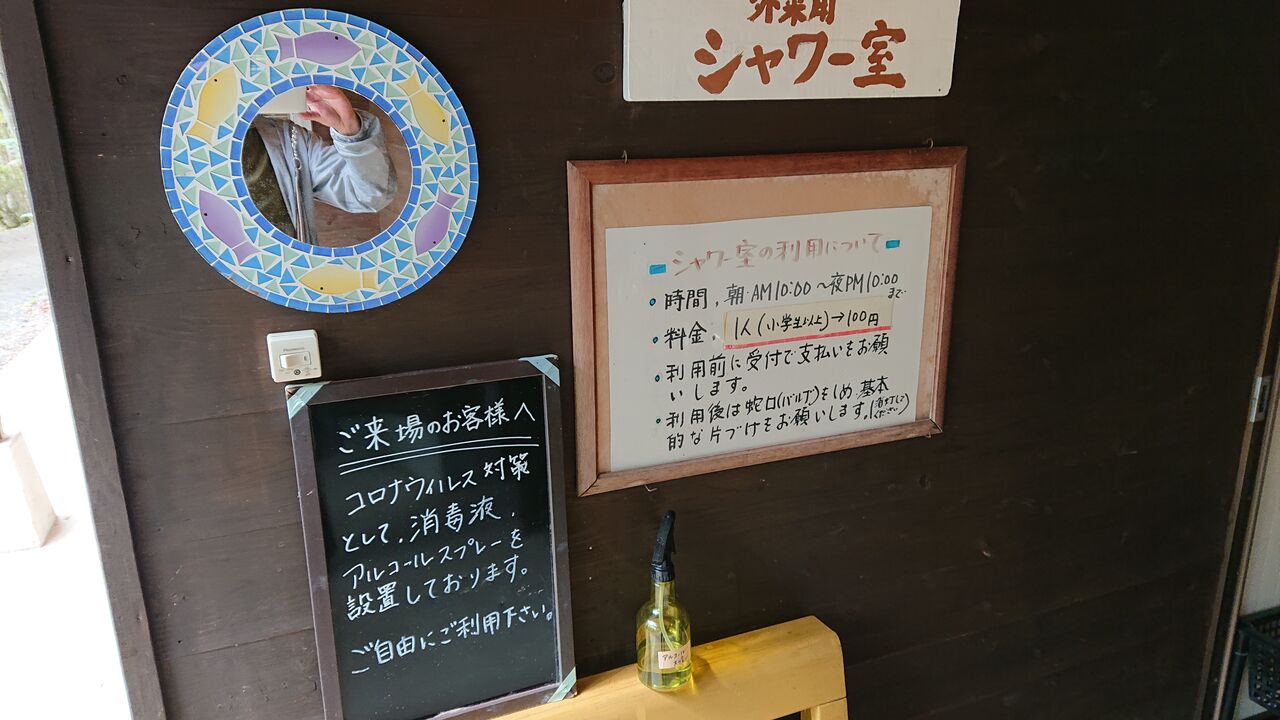 シャワー室
シャワー室の利用について
・時間、朝・AM10:00〜夜PM10:00まで
・料金、1人(小学生以上)→100円
・利用前に受付で支払いをお願
いします。
・利用後は蛇口(バルブ)をしめ、基本
的な片づけをお願いします。(消灯して
ください)
Panasonic
ご来場のお客様へ
コロナウィルス対策
として、消毒液、
アルコールスプレーを
設置しております。
ご自由にご利用下さい。